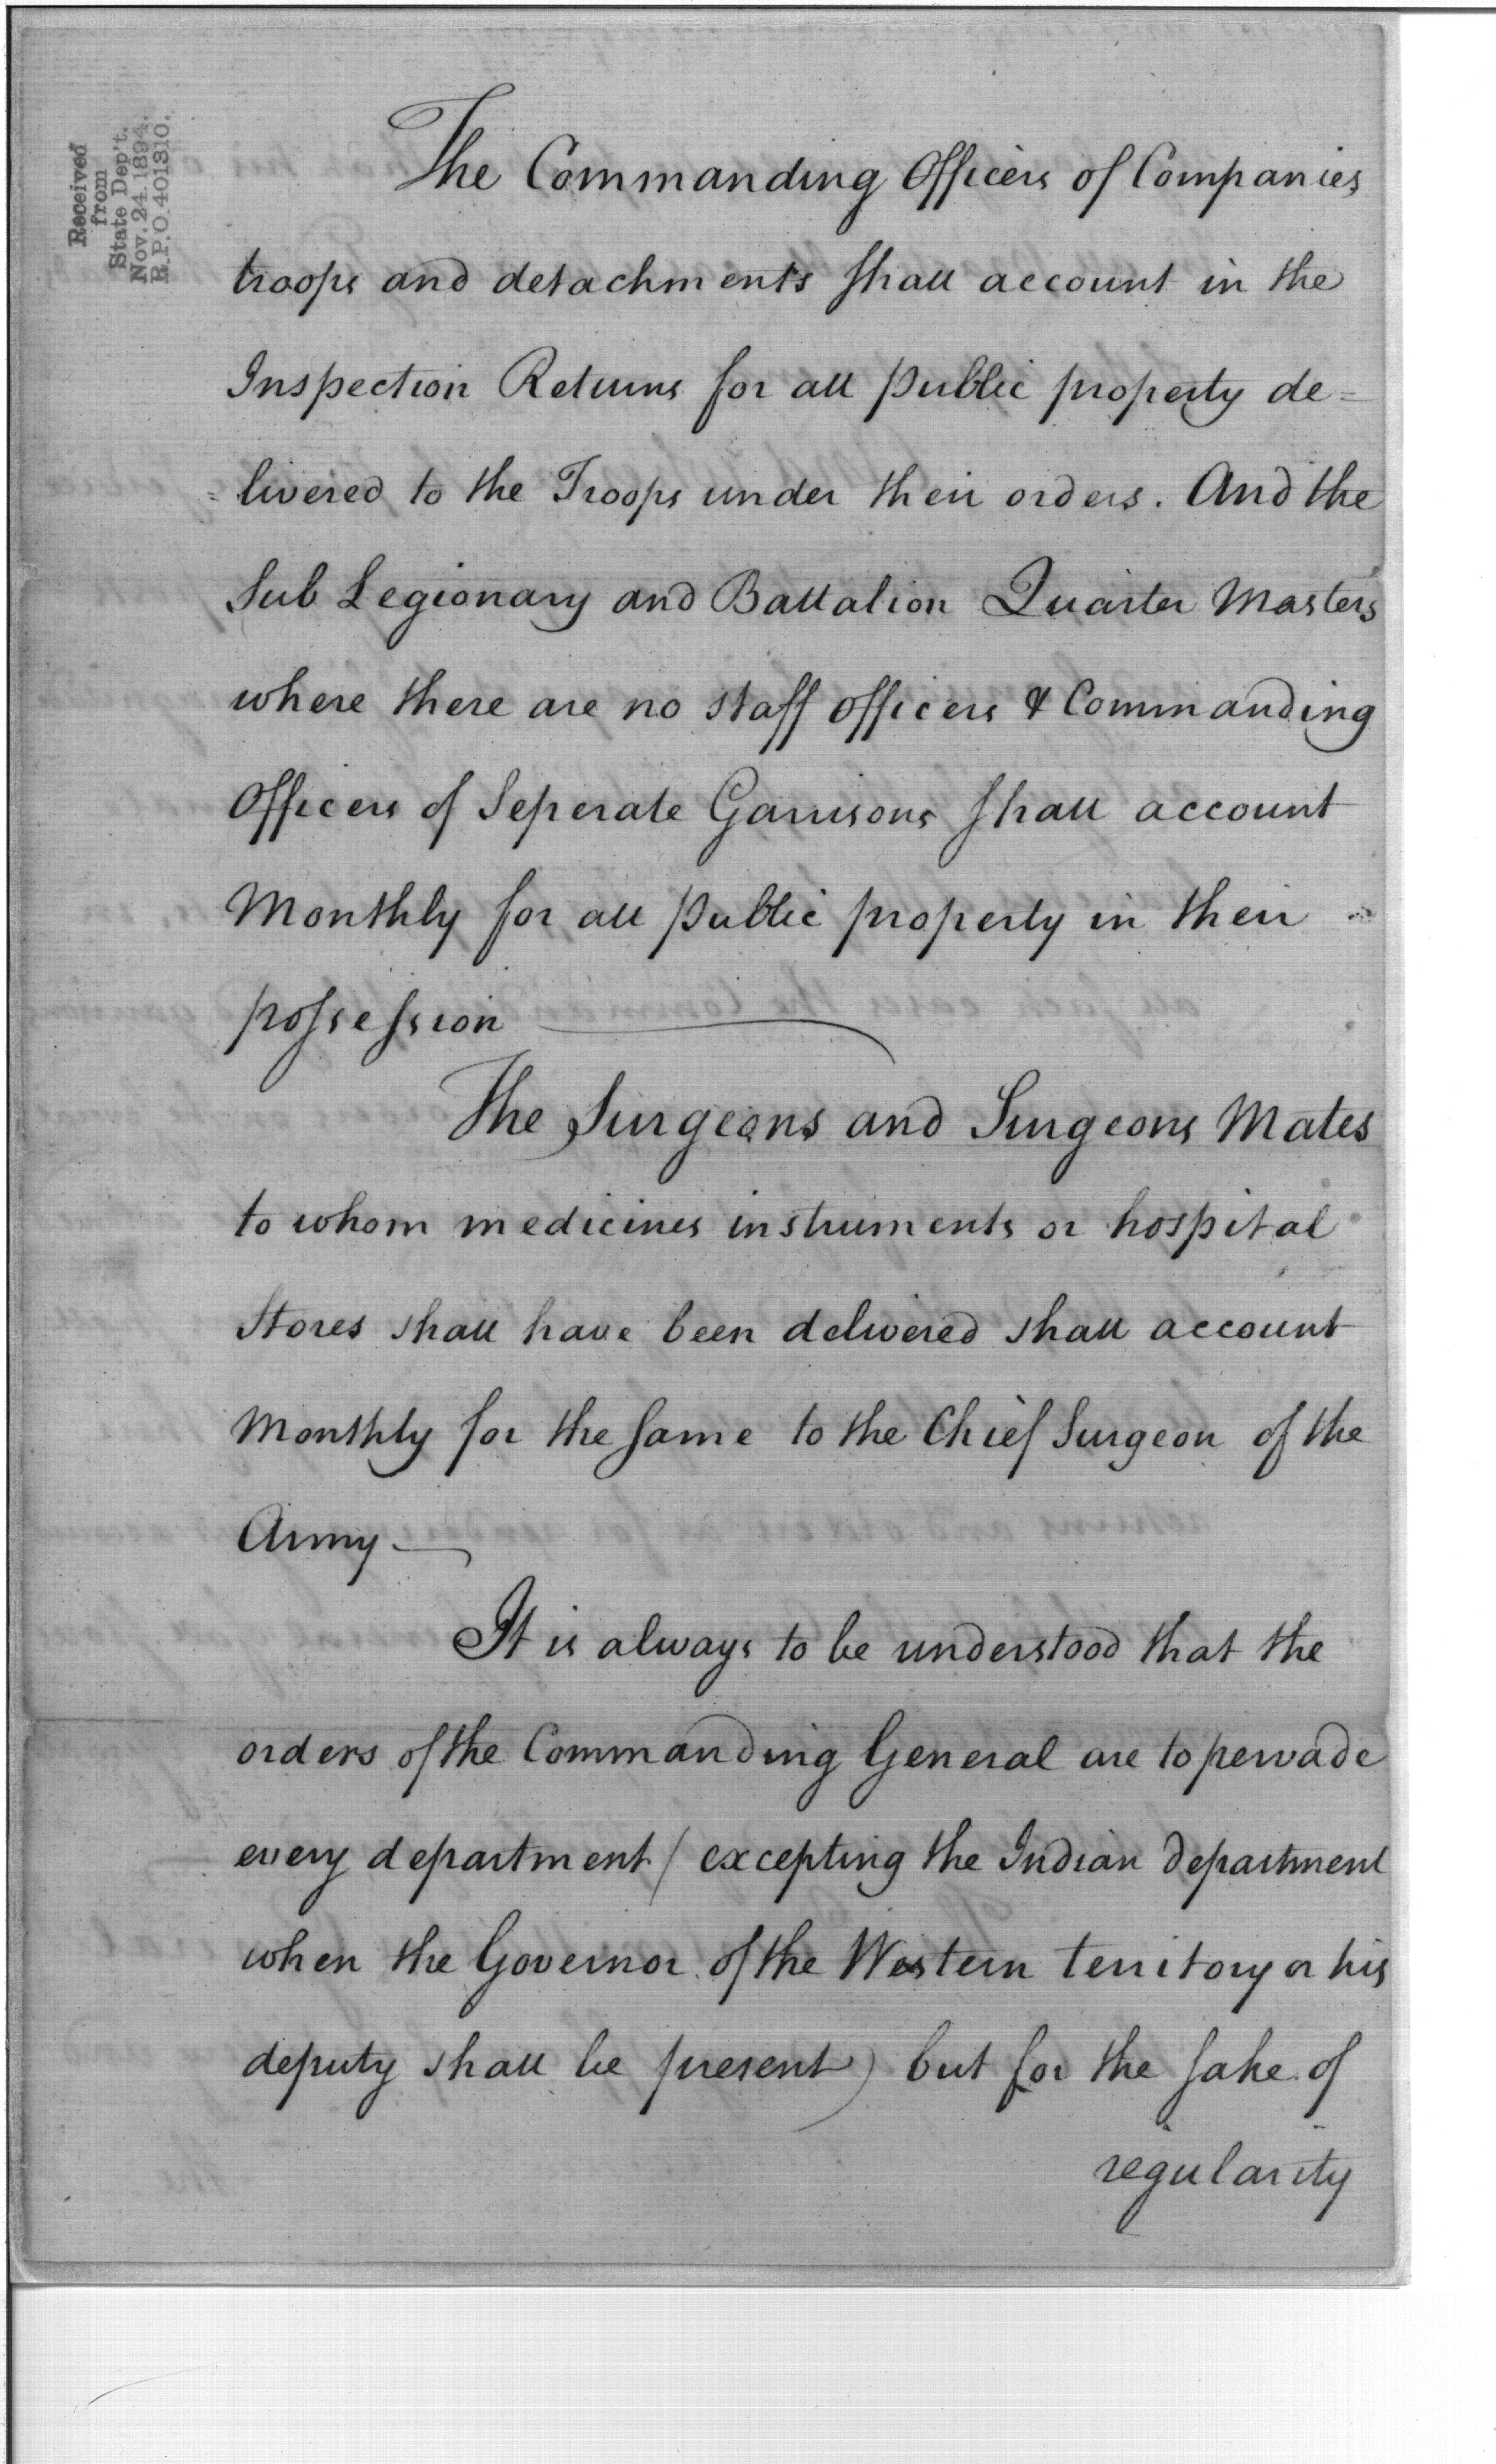 Received
from
State Dep't.
Nov. 24. 1894.
R.P.O. 401310.
The Commanding Officers of Companies
troops and detachments shall account in the
Inspection Returns for all public property de=
=livered to the Troops under their orders. And the
Sub Legionary and Battalion Quarter Masters
where there are no staff officers & Commanding
Officers of Seperate Garrisons shall account
Monthly for all public property in their
possession
The Surgeons and Surgeons Mates
to whom medicines instruments or hospital
Stores shall have been delivered shall account
Monthly for the same to the Chief Surgeon of the
Army—
It is always to be understood that the
orders of the Commanding General are to pervade
every department / excepting the Indian department
when the Governor of the Western territory or his
deputy shall be present) but for the sake of
regularity